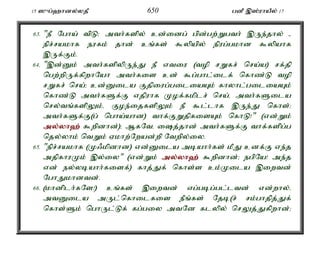 15 ஸுப்ஹானல்லதீ 650 பனீ இஸ்ராயீல் 17
63. "நீ போய் விடு; அவர்களில் உன்னைப் பின்பற்றுபவர் இருந்தால் -
நிச்சயமாக நரகம் தான் உங்கள் கூலியில் நிரப்பமான கூலியாக
இருக்கும்.
64. "இன்னும் அவர்களிலிருந்து நீ எவரை (வழி சறுகச் செய்ய) சக்தி
பெற்றிருக்கிறாயோ அவர்களை உன் கூப்பாட்டைக் கொண்டு வழி
சறுகச் செய்; உன்னுடைய குதிரைப்படையையும் காலாட்படையையும்
கொண்டு அவர்களுக்கு எதிராக முழக்கமிடச் செய். அவர்களுடைய
செல்வங்களிலும், குழந்தைகளிலும் நீ கூட்டாக இருந்து கொள்;
அவர்களுக்கு(ப் பொய்யான) வாக்குறுதிகளையும் கொடு!" (என்றும்
அல்லாஹ் கூறினான்); ஆகவே, ஷைத்தான் அவர்களுக்கு வாக்களிப்ப
தெல்லாம் வெறும் ஏமாற்றேயன்றி வேறில்லை.
65. "நிச்சயமாக (முஃமினான) என்னுடைய அடியார்கள் மீது உனக்கு எந்த
அதிகாரமும் இல்லை" (என்றும் அல்லாஹ் கூறினான்; நபியே! அந்த
என் நல்லடியார்களைக்) காத்துக் கொள்ள உம்முடைய இறைவன்
போதுமானவன்.
66. (மானிடர்களே!) உங்கள் இறைவன் எப்படிப்பட்டவன் என்றால்,
அவனுடைய அருட்கொடைகளை நீங்கள் தேடி(ச் சம்பாதித்துக்
கொள்ளும் பொருட்டுக் கப்பலை அவனே கடலில் செலுத்துகிறான்;